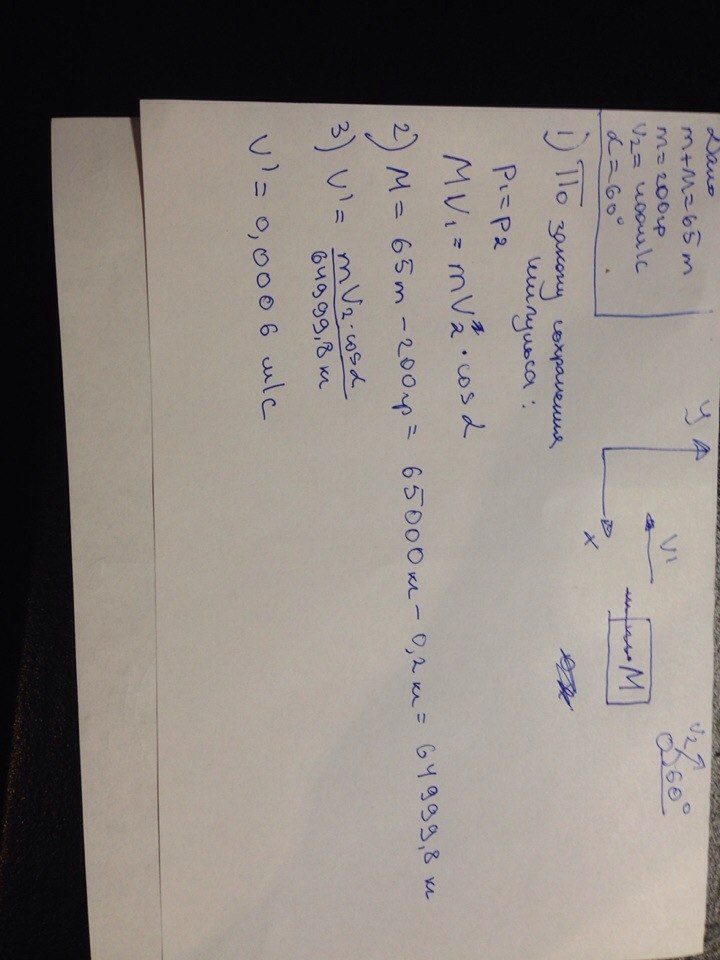 Дано
m+M=65 т
m=200гр
V2=400м/с
α=60°
y
x
V1
M
V2
60°
1) По закону сохранения
импульса:
P1=P2
MV1=mV2·cosα
2) M=65т-200гр=65000кг-0,2кг=64999,8 кг
3) V'= mV2·cosα
64999,8 кг
V'=0,0006 м/с